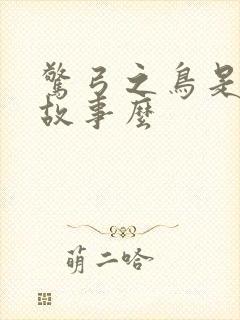 驚弓之鳥是
故事麼
萌二哈